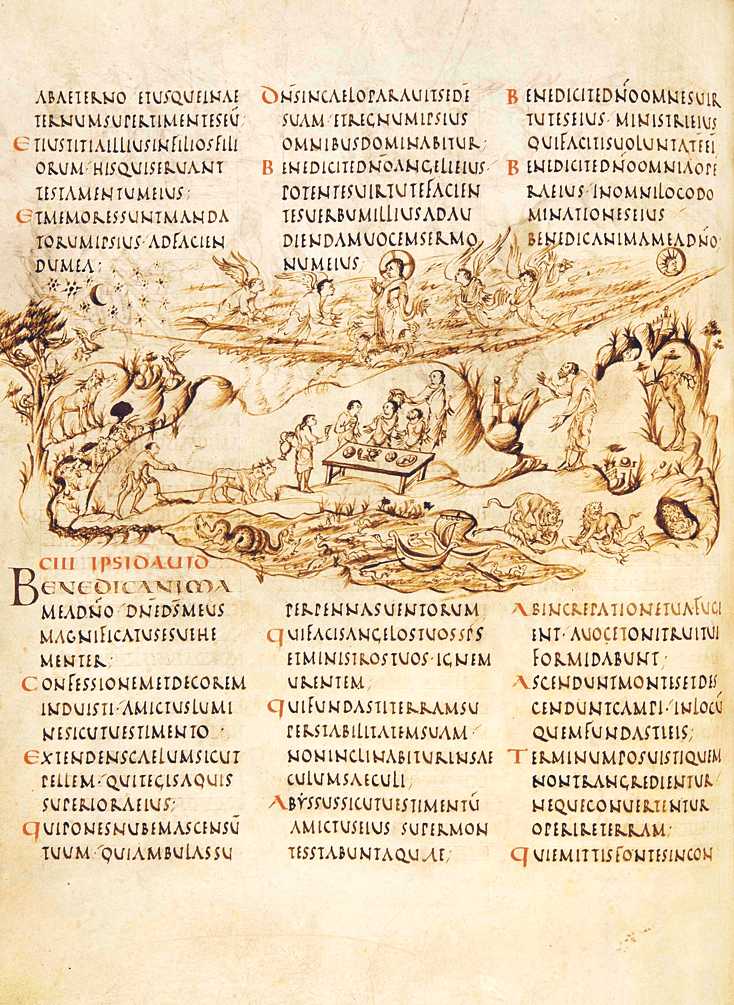 ABAETERNO ETUSQUEINAE
TERNUMSUPERTIMENTESEŪ
ETIUSTITIAILLIUSINFILIOSFILI
ORUM·HISQUISERUANT
TESTAMENTUMEIUS;
ETMEMORESSUNTMANDA
TORUMIPSIUS·ADFACIEN
DUMEA;
DN̄SINCAELOPARAUITSEDĒ
SUAM·ETREGNUMIPSIUS
OMNIBUSDOMINABITUR;
BENEDICITEDN̄OANGELIEIUS·
POTENTESUIRTUTEFACIEN
TESUERBUMILLIUSADAU
DIENDAMUOCEMSERMO
NUMEIUS;
BENEDICITEDN̄OOMNESUIR
TUTESEIUS·MINISTRIEIUS
QUIFACITISUOLUNTATĒEI
BENEDICITEDN̄OOMNIAOPE
RAEIUS·INOMNILOCODO
MINATIONESEIUS
BENEDICANIMAMEADN̄O·
CIII IPSIDAUID
BENEDICANIMA
MEADN̄O·DNEDS̄MEUS
MAGNIFICATUSESUEHE
MENTER;
CONFESSIONEMETDECOREM
INDUISTI·AMICTUSLUMI
NESICUTUESTIMENTO·
EXTENDENSCAELUMSICUT
PELLEM·QUITEGISAQUIS
SUPERIORAEIUS;
QUIPONESNUBEMASCENSŪ
TUUM·QUIAMBULASSU
PERPENNASUENTORUM
QUIFACISANGELOSTUOSSP̄S
ETMINISTROSTUOS·IGNEM
URENTEM;
QUIFUNDASTITERRAMSU
PERSTABILITATEMSUAM·
NONINCLINABITURINSAE
CULUMSAECULI;
ABYSSUSSICUTUESTIMENTŪ
AMICTUSEIUS SUPERMON
TESSTABUNTAQUAE;
ABINCREPATIONETUAFUGI
ENT·AUOCETONITRUITUI
FORMIDABUNT;
ASCENDUNTMONTESETDES
CENDUNTCAMPI·INLOCŪ
QUEMFUNDASTIEIS;
TERMINUMPOSUISTIQUEM
NONTRANGREDIENTUR·
NEQUECONUERTENTUR
OPERIRETERRAM;
QUIEMITTISFONTESINCON